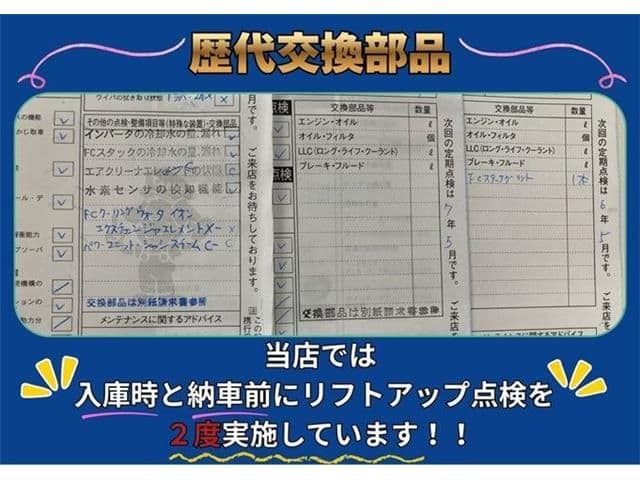 歴代交換部品
その他の点検・整備項目等(特殊な装置)・交換部品
インバータの冷却水の量、漏れ
FCスタックの冷却水の量、漏れ
エアクリーナエレメントの状態
水素センサの検知機能
FCクーリングウォータ イオン
交換部品は別紙請求書参照
メンテナンスに関するアドバイス
月です。ご来店をお待ちしております。
点検
交換部品等 数量
エンジン・オイル ℓ
オイル・フィルタ 個
LLC(ロング・ライフ・クーラント) ℓ
ブレーキ・フルード ℓ
点検
交換部品は別紙請求書参照
次回の定期点検は 7年 5月です。ご来店を
交換部品等 数量
エンジン・オイル ℓ
オイル・フィルタ 個
LLC(ロング・ライフ・クーラント) ℓ
ブレーキ・フルード ℓ
次回の定期点検は 6年 5月です。ご来店を
当店では
入庫時と納車前にリフトアップ点検を
2度実施しています!!